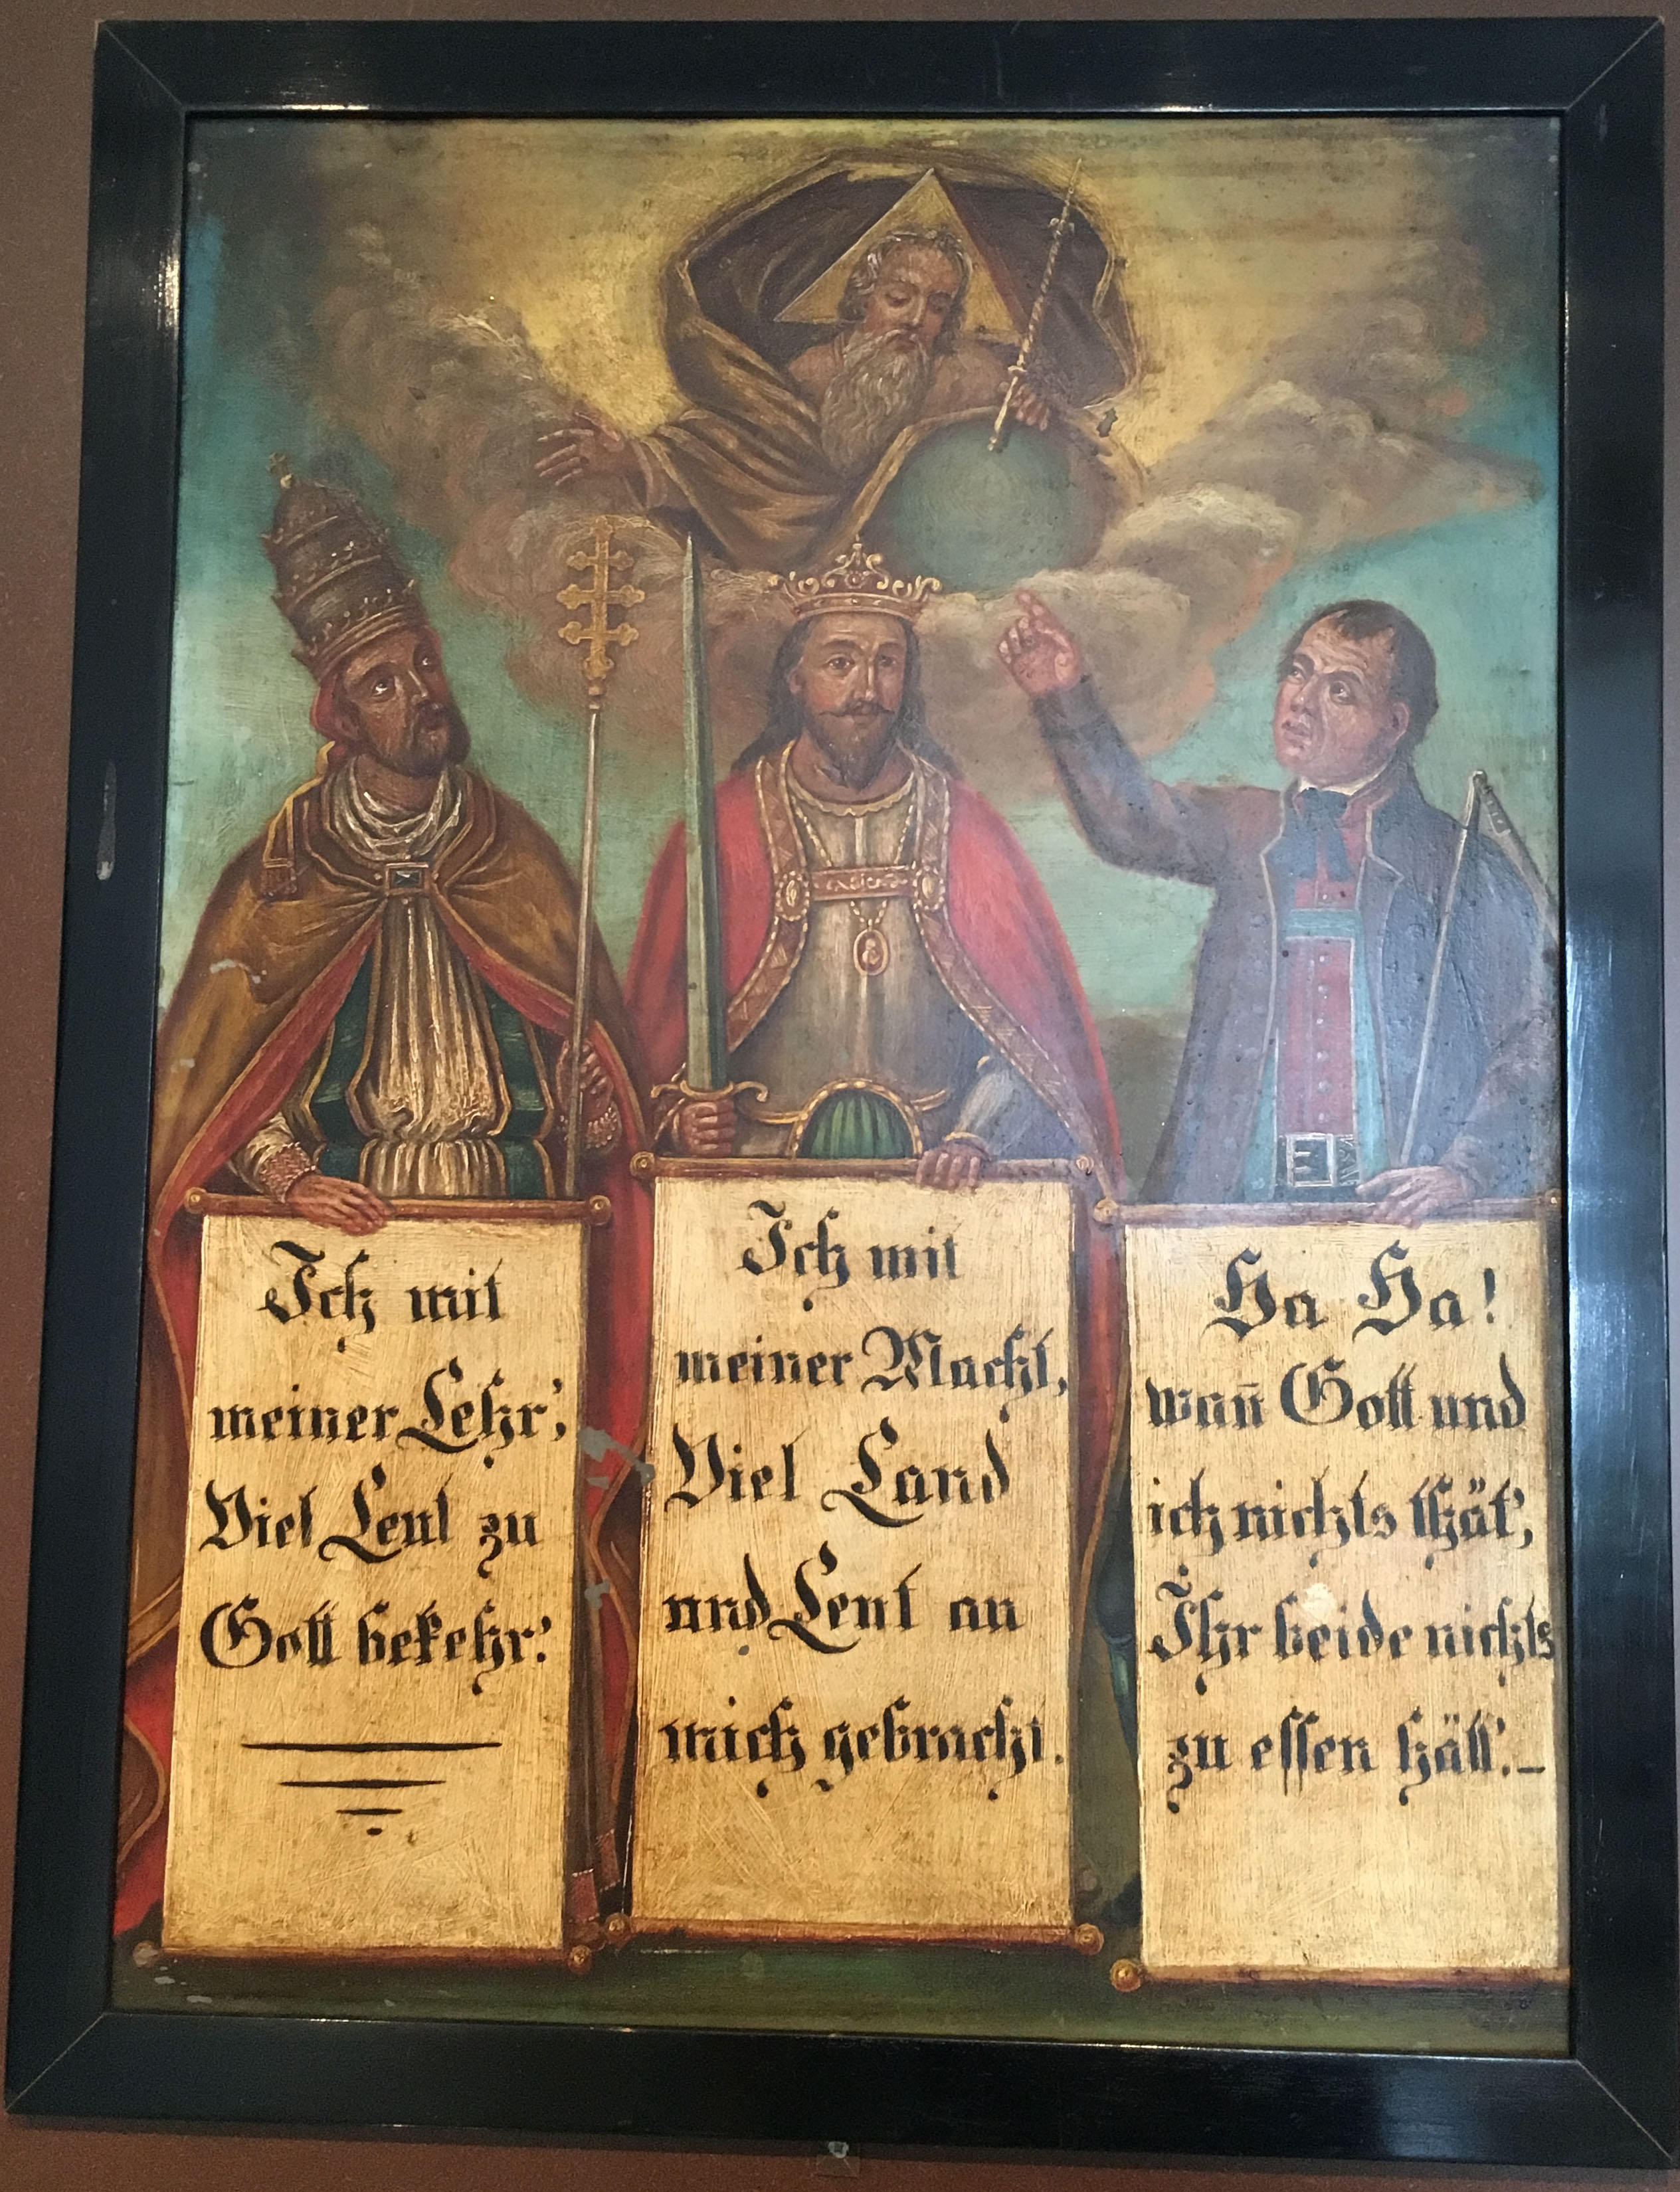 Ich mit
meiner Lehr',
Viel Leut zu
Gott bekehr:
Ich mit
meiner Macht,
Viel Land
und Leut an
mich gebracht.
Ha Ha!
wan̄ Gott und
ich nichts thät',
Ihr beide nichts
zu essen hätt'.–